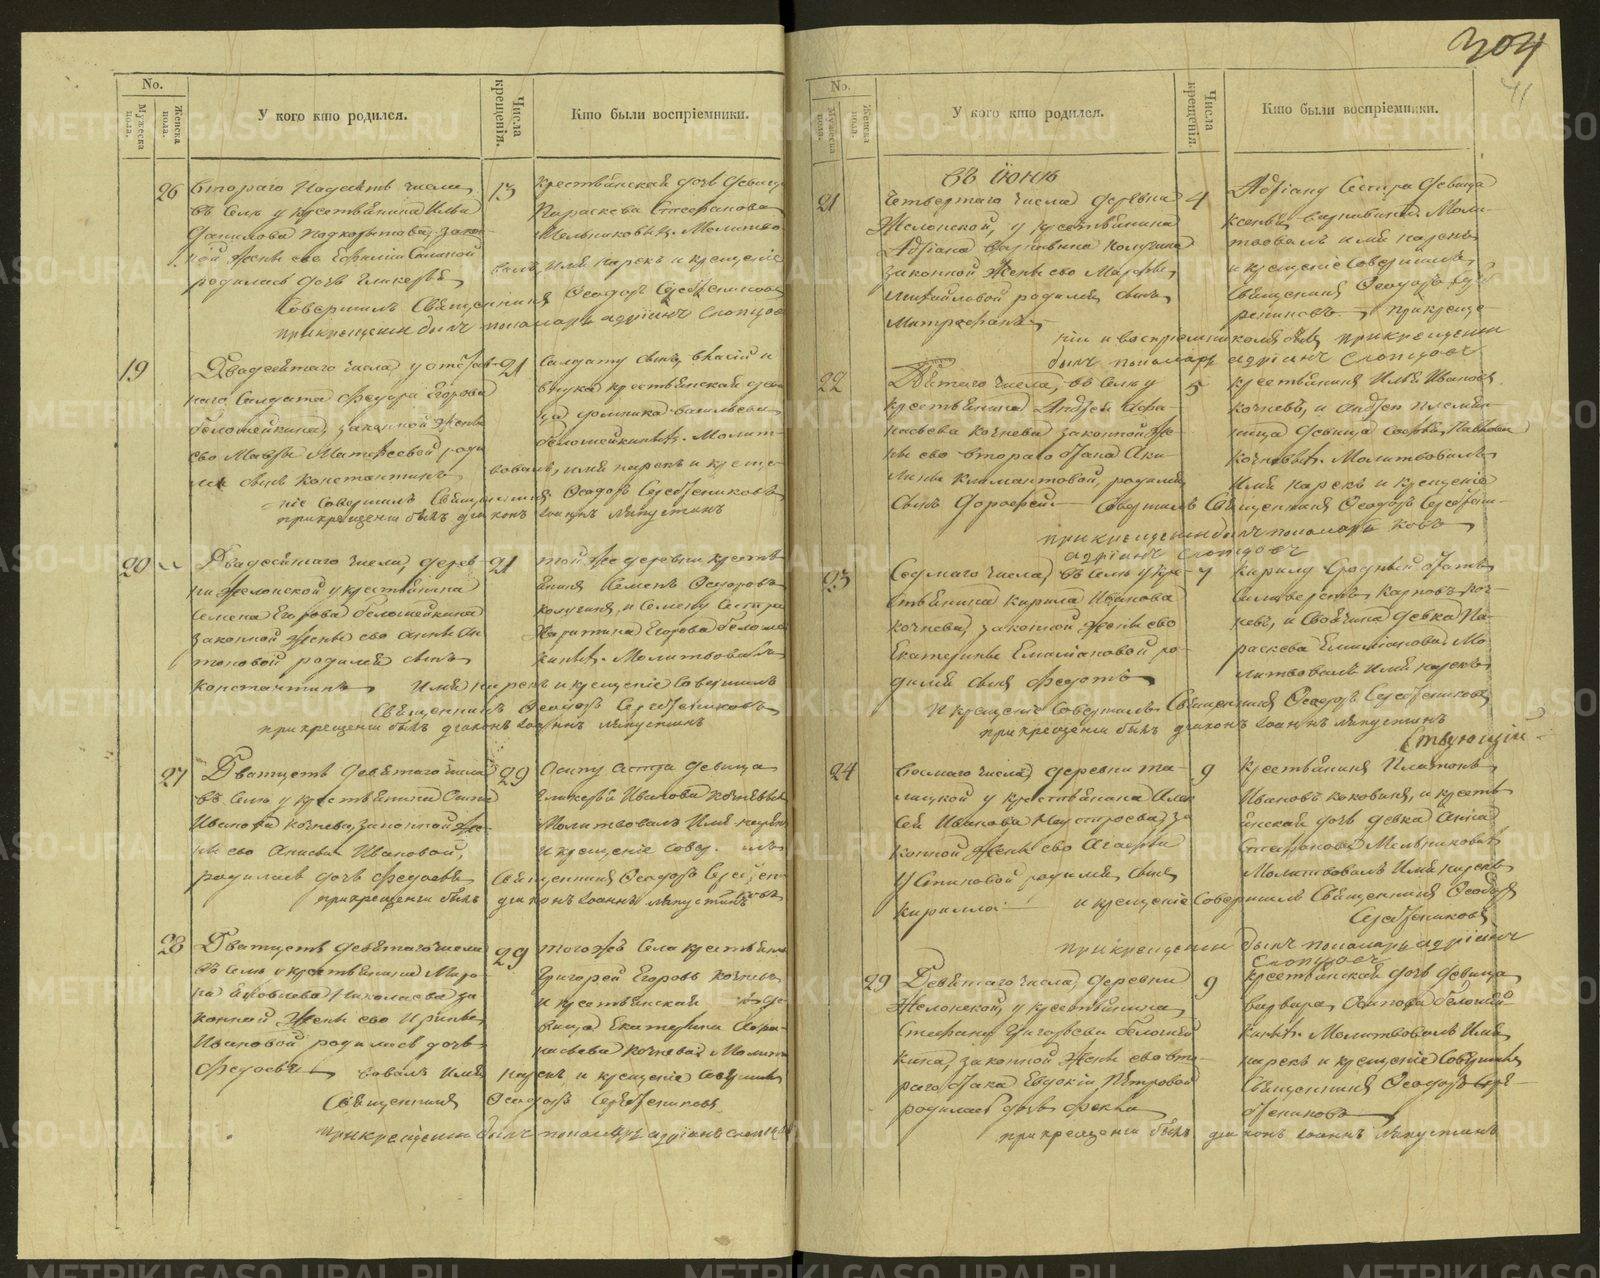 304
41
No.
Мужеска пола.
Женска пола.
У кого кто родился.
Числа крещенія.
Кто были воспріемники.
26
Втораго Надесять числа
въ селѣ у крестьянина Ильи
Данилова Подкорытова, закон-
ной жены его
родилась дочь Гликерья
13
крестьянская дочь девица
Параскева Стефанова
Мельникова. Молитво-
валъ, имя нарекъ и крещеніе
Совершилъ Священникъ Феодоръ Серебрениковъ
при крещеніи былъ пономарь Адріанъ Слопцовъ
19
Двадесятаго числа у отстав-
наго Салдата Федора Егорова
белошейкина, законной жены
его Мавры Матвеевой роди
лся сынъ Константинъ
21
Салдату сынъ, и
внука крестьянская деви
ца васильева
белошейкина. Молит-
вовалъ, имя нарекъ и креще-
ніе Совершилъ Священникъ Феодоръ Серебрениковъ
при крещеніи былъ диаконъ Іоаннъ Лапустинъ
20
Двадесятаго числа, дерев-
ни Желонской у крестьянина
Семена Егорова белошейкина
законной жены его Анны Ан
тоновой родился сынъ
Константинъ
21
той же деревни кресть
янинъ Семенъ Феодоровъ
калугинъ, и Семену Сестра
Харитина Егорова белоше
кина. Молитвовалъ
Имя нарекъ и крещеніе Совершилъ
Священникъ Феодоръ Серебрениковъ
при крещеніи былъ диаконъ Іоаннъ Лапустинъ
27
Дватцеть девятаго числа
въ селѣ у крестьянина Осипа
Иванова кочнева, законной же-
ны его Анисьи Ивановой,
родилась дочь Федосья
29
Осипу сестра девица
Гликерья Иванова кочнева
Молитвовалъ Имя нарекъ
и крещеніе совер-илъ
Священникъ Феодоръ Серебрениковъ
при крещеніи былъ диаконъ Іоаннъ Лапустинъ
28
Дватцеть девятаго числа
въ селѣ у крестьянина Миро-
на Яковлева Николаева за
конной жены его Ирины
Ивановой родилась дочь
Федосья
29
того жъ села крестьянинъ
Григорей Егоровъ кочневъ
и крестьянская де-
вица Екатерина Афа-
насьева кочнева Молит
вовалъ Имя нарекъ и крещеніе Совершилъ
Священникъ Феодоръ Серебрениковъ
при крещеніи былъ пономарь Адріанъ Слопцовъ
No.
Мужеска пола.
Женска пола.
У кого кто родился.
Числа крещенія.
Кто были воспріемники.
въ іюнѣ
21
Четвертаго числа деревни
Желонской, у крестьянина
Адріана варлавина калугина
законной жены его Марфы
Михайловой родился сынъ
Митрофанъ
4
Адріану Сестра девица
Ксенья варлавина. Моли-
твовалъ имя нарекъ
и крещеніе Совершилъ
Священникъ Феодоръ Сереб-
рениковъ, при креще-
ніи и воспріемникомъ былъ при крещеніи
былъ пономарь Адріанъ Слопцовъ
22
Пятаго числа, въ селѣ у
крестьянина Андрея Афа-
насьева кочнева законной же-
ны его втораго брака Аку-
лины климантовой, родился
сынъ Дорофей
5
крестьянинъ Илья Ивановъ
кочневъ, и Андрея племян-
ница девица Софья Павлова
кочнева. Молитвовалъ
Имя нарекъ и крещеніе
Совершилъ Священникъ Феодоръ Серебрен-
при крещеніи былъ пономарь ковъ
Адріанъ Слопцовъ
23
Седмаго числа, въ селѣ у кре-
стьянина Кирила Иванова
кочнева, законной жены его
Екатерины Емельяновой ро-
дился сынъ Федотъ
7
Кирилу сродный братъ
Селиверстъ Карповъ коч-
невъ, и Свойчина девка Па-
раскева Емилианова Мо
литвовалъ Имя нарекъ
и крещеніе Совершилъ Священникъ Феодоръ Серебрениковъ
при крещеніи былъ диаконъ Іоаннъ Лапустинъ
24
Восмаго числа, деревни та-
лицкой у крестьянина Алек
сея Иванова Неустроева за
конной жены его Агафьи
Устиновой родился сынъ
Кирилла
9
крестьянинъ Платонъ
Ивановъ коковинъ, и кресть
янская дочь девка Анна
Степанова Мельникова
Молитвовалъ Имя нарекъ
и крещеніе Совершилъ Священникъ Феодоръ
Серебрениковъ
при крещеніи былъ пономарь Адріанъ
Слопцовъ
29
Девятаго числа, деревни
Желонской, у крестьянина
Стефана Григорьева белошей
кина, законной жены его вто-
раго брака Евдокіи Петровой
родилась дочь Фекла
9
крестьянская дочь девица
варвара Осипова белошей-
кина. Молитвовалъ Имя
нарекъ и крещеніе Совершилъ
Священникъ Феодоръ Сере-
брениковъ
при крещеніи былъ диаконъ Іоаннъ Лапустинъ
METRIKI.GASO-URAL.RU